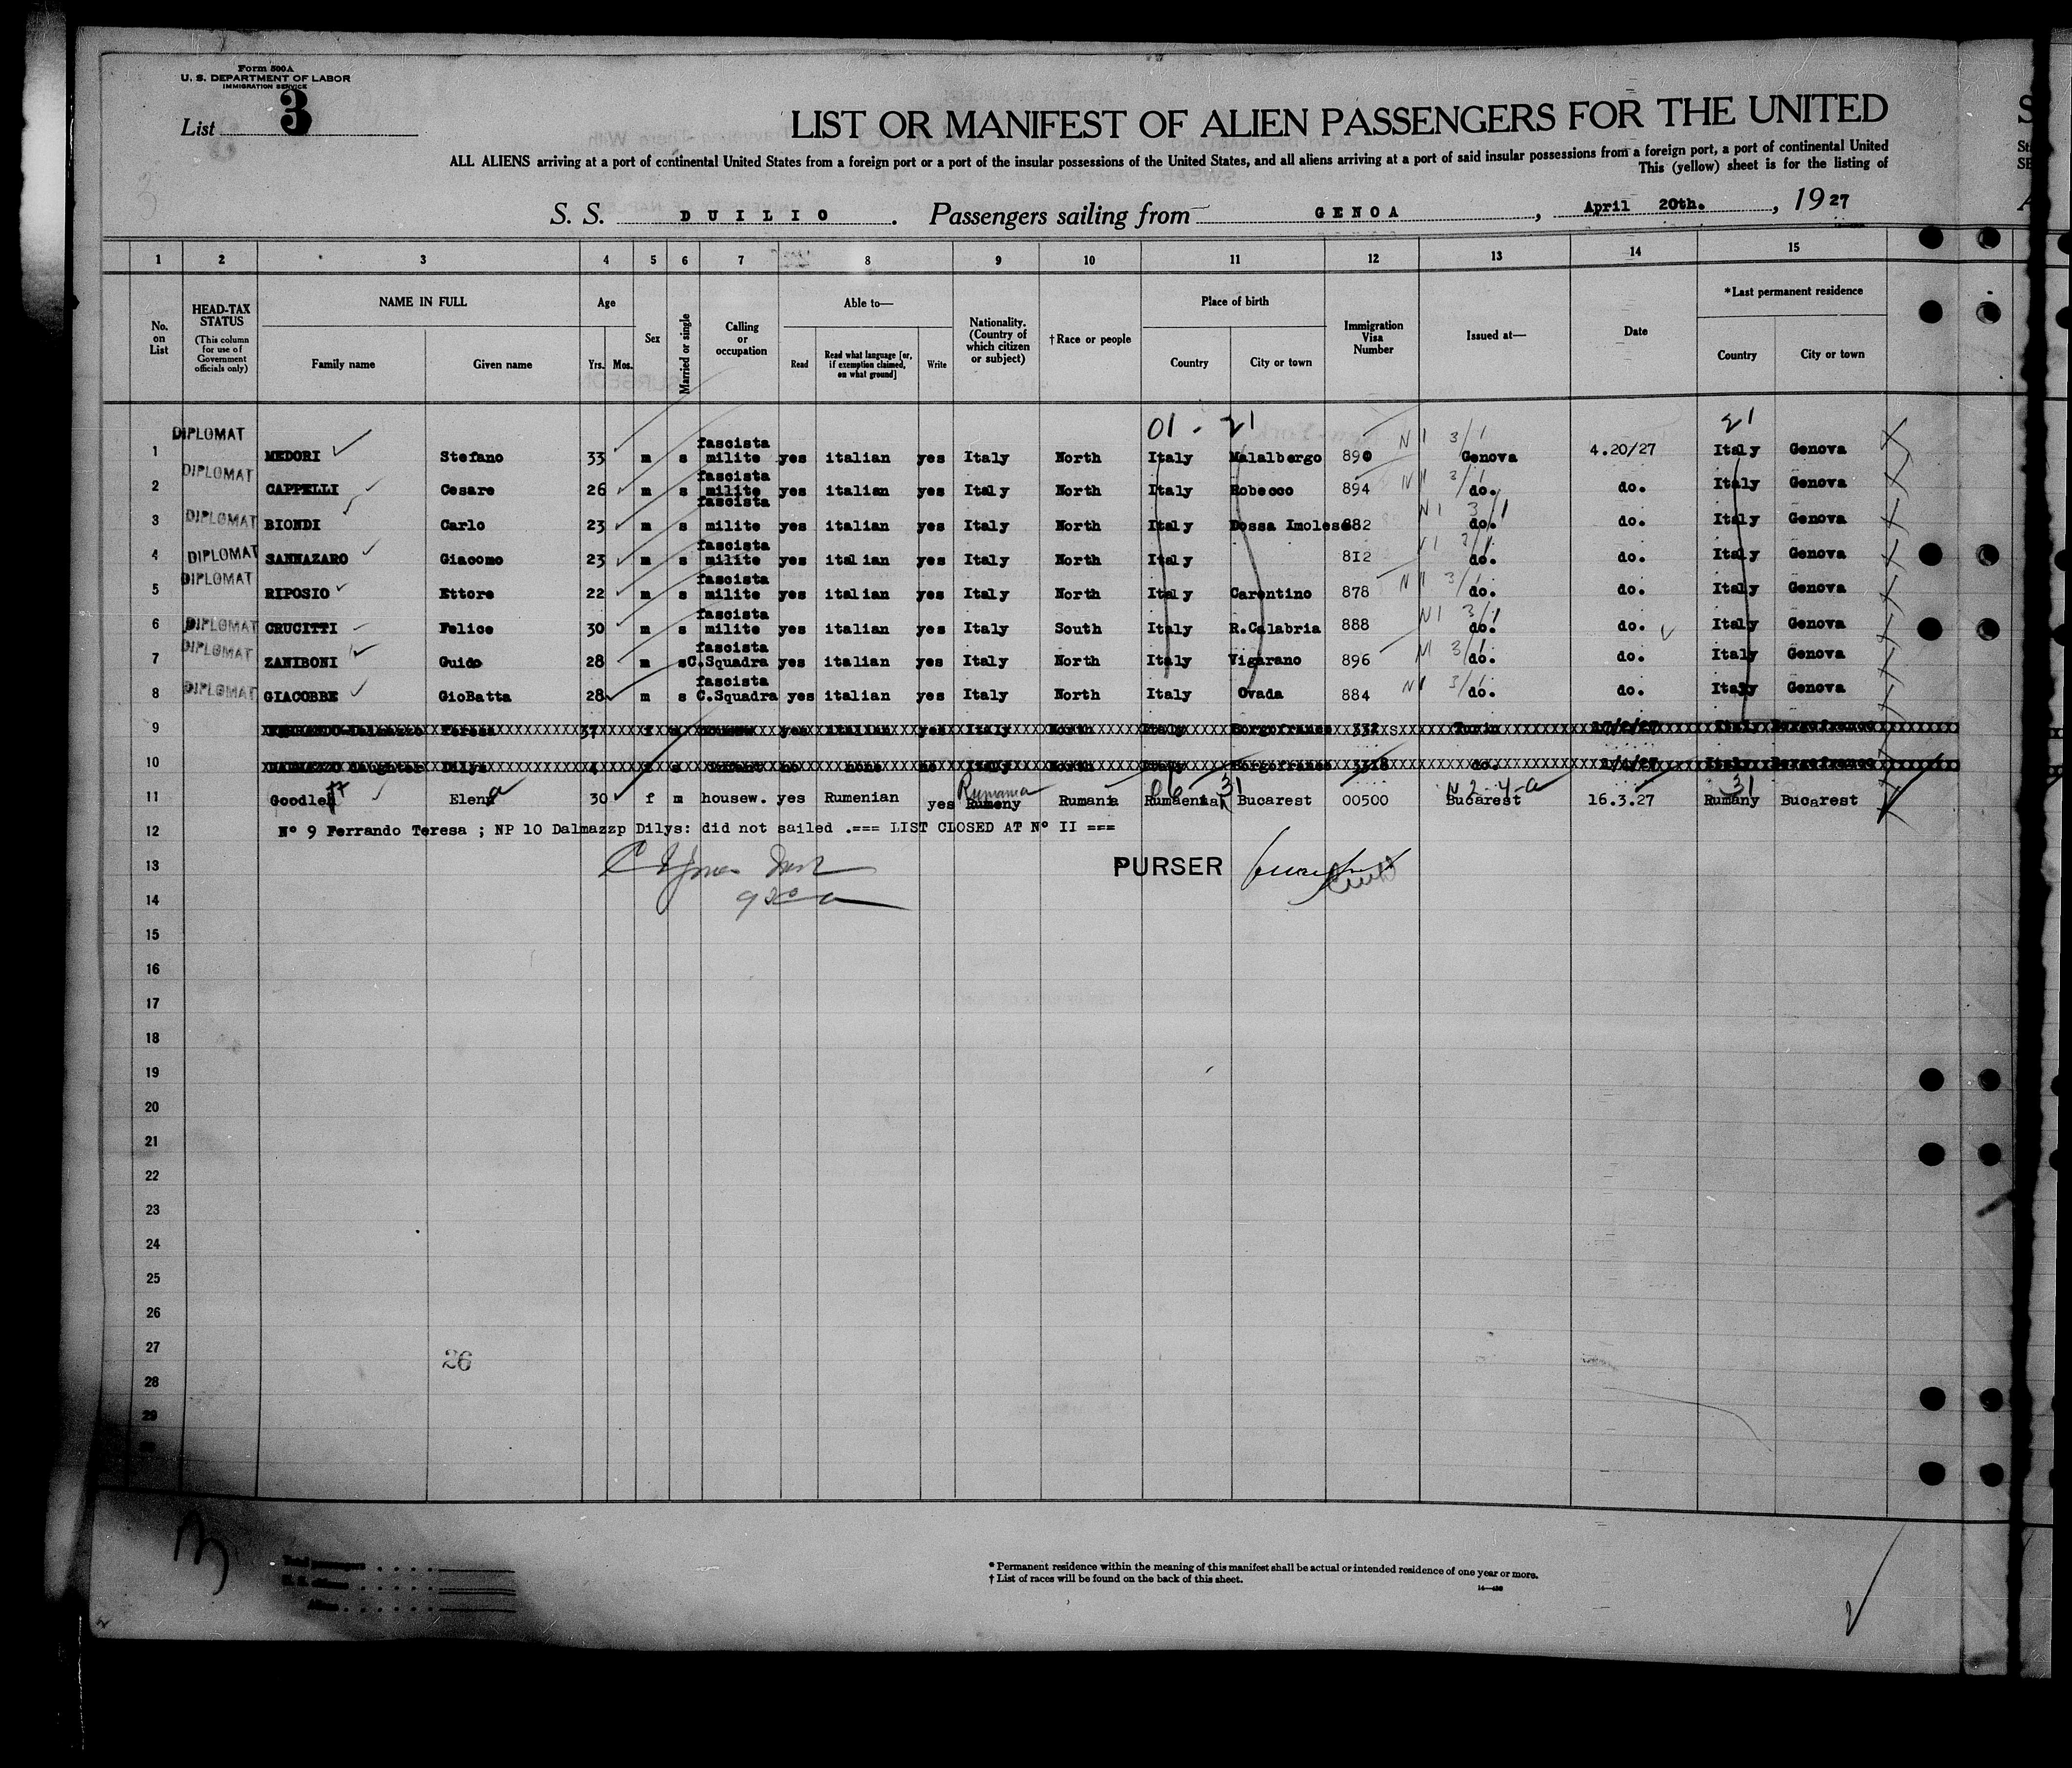 Form 500A
U. S. DEPARTMENT OF LABOR
IMMIGRATION SERVICE
List 3
LIST OR MANIFEST OF ALIEN PASSENGERS FOR THE UNITED
ALL ALIENS arriving at a port of continental United States from a foreign port or a port of the insular possessions of the United States, and all aliens arriving at a port of said insular possessions from a foreign port, a port of continental United
This (yellow) sheet is for the listing of
S. S. DUILIO. Passengers sailing from GENOA, April 20th., 1927
1 2 3 4 5 6 7 8 9 10 11 12 13 14 15
No. on List
HEAD-TAX STATUS
(This column for use of Government officials only)
NAME IN FULL
Family name
Given name
Age
Yrs. Mos.
Sex
Married or single
Calling or occupation
Able to—
Read
Read what language [or, if exemption claimed, on what ground]
Write
Nationality. (Country of which citizen or subject)
†Race or people
Place of birth
Country
City or town
Immigration Visa Number
Issued at—
Date
*Last permanent residence
Country
City or town
01 - 21 21
1 DIPLOMAT MEDORI Stefano 33 m s fascista milite yes italian yes Italy North Italy Malalbergo 890 N1 3/1 Genova 4.20/27 Italy Genova
2 DIPLOMAT CAPPELLI Cesare 26 m s fascista milite yes italian yes Italy North Italy Robecco 894 N1 3/1 do. do. Italy Genova
3 DIPLOMAT BIONDI Carlo 23 m s fascista milite yes italian yes Italy North Italy Dossa Imolese 882 N1 3/1 do. do. Italy Genova
4 DIPLOMAT SANNAZARO Giacomo 23 m s fascista milite yes italian yes Italy North Italy 812 N1 3/1 do. do. Italy Genova
5 DIPLOMAT RIPOSIO Ettore 22 m s fascista milite yes italian yes Italy North Italy Carentino 878 N1 3/1 do. do. Italy Genova
6 DIPLOMAT CRUCITTI Felice 30 m s fascista milite yes italian yes Italy South Italy R.Calabria 888 N1 3/1 do. do. Italy Genova
7 DIPLOMAT ZANIBONI Guido 28 m s fascista C.Squadra yes italian yes Italy North Italy Vigarano 896 N1 3/1 do. do. Italy Genova
8 DIPLOMAT GIACOBBE GioBatta 28 m s fascista C.Squadra yes italian yes Italy North Italy Ovada 884 N1 3/1 do. do. Italy Genova
9 Teresa 37 f yes italian yes Italy North Italy Borgofranco Turin Italy Borgofranco
10 daughter Dilys infant no none no Italy North Italy Borgofranco do. Italy Borgofranco
11 Goodlett Elena 30 f m housew. yes Rumenian yes Rumania Rumania 06 31 Bucarest 00500 N2 4-a Bucarest 16.3.27 31 Rumany Bucarest
12 Nº 9 Ferrando Teresa ; NP 10 Dalmazzp Dilys: did not sailed .=== LIST CLOSED AT Nº II ===
13 PURSER
14
15
16
17
18
19
20
21
22
23
24
25
26
27
26
28
29
3
Total passengers
U. S. citizens
Aliens
* Permanent residence within the meaning of this manifest shall be actual or intended residence of one year or more.
† List of races will be found on the back of this sheet.